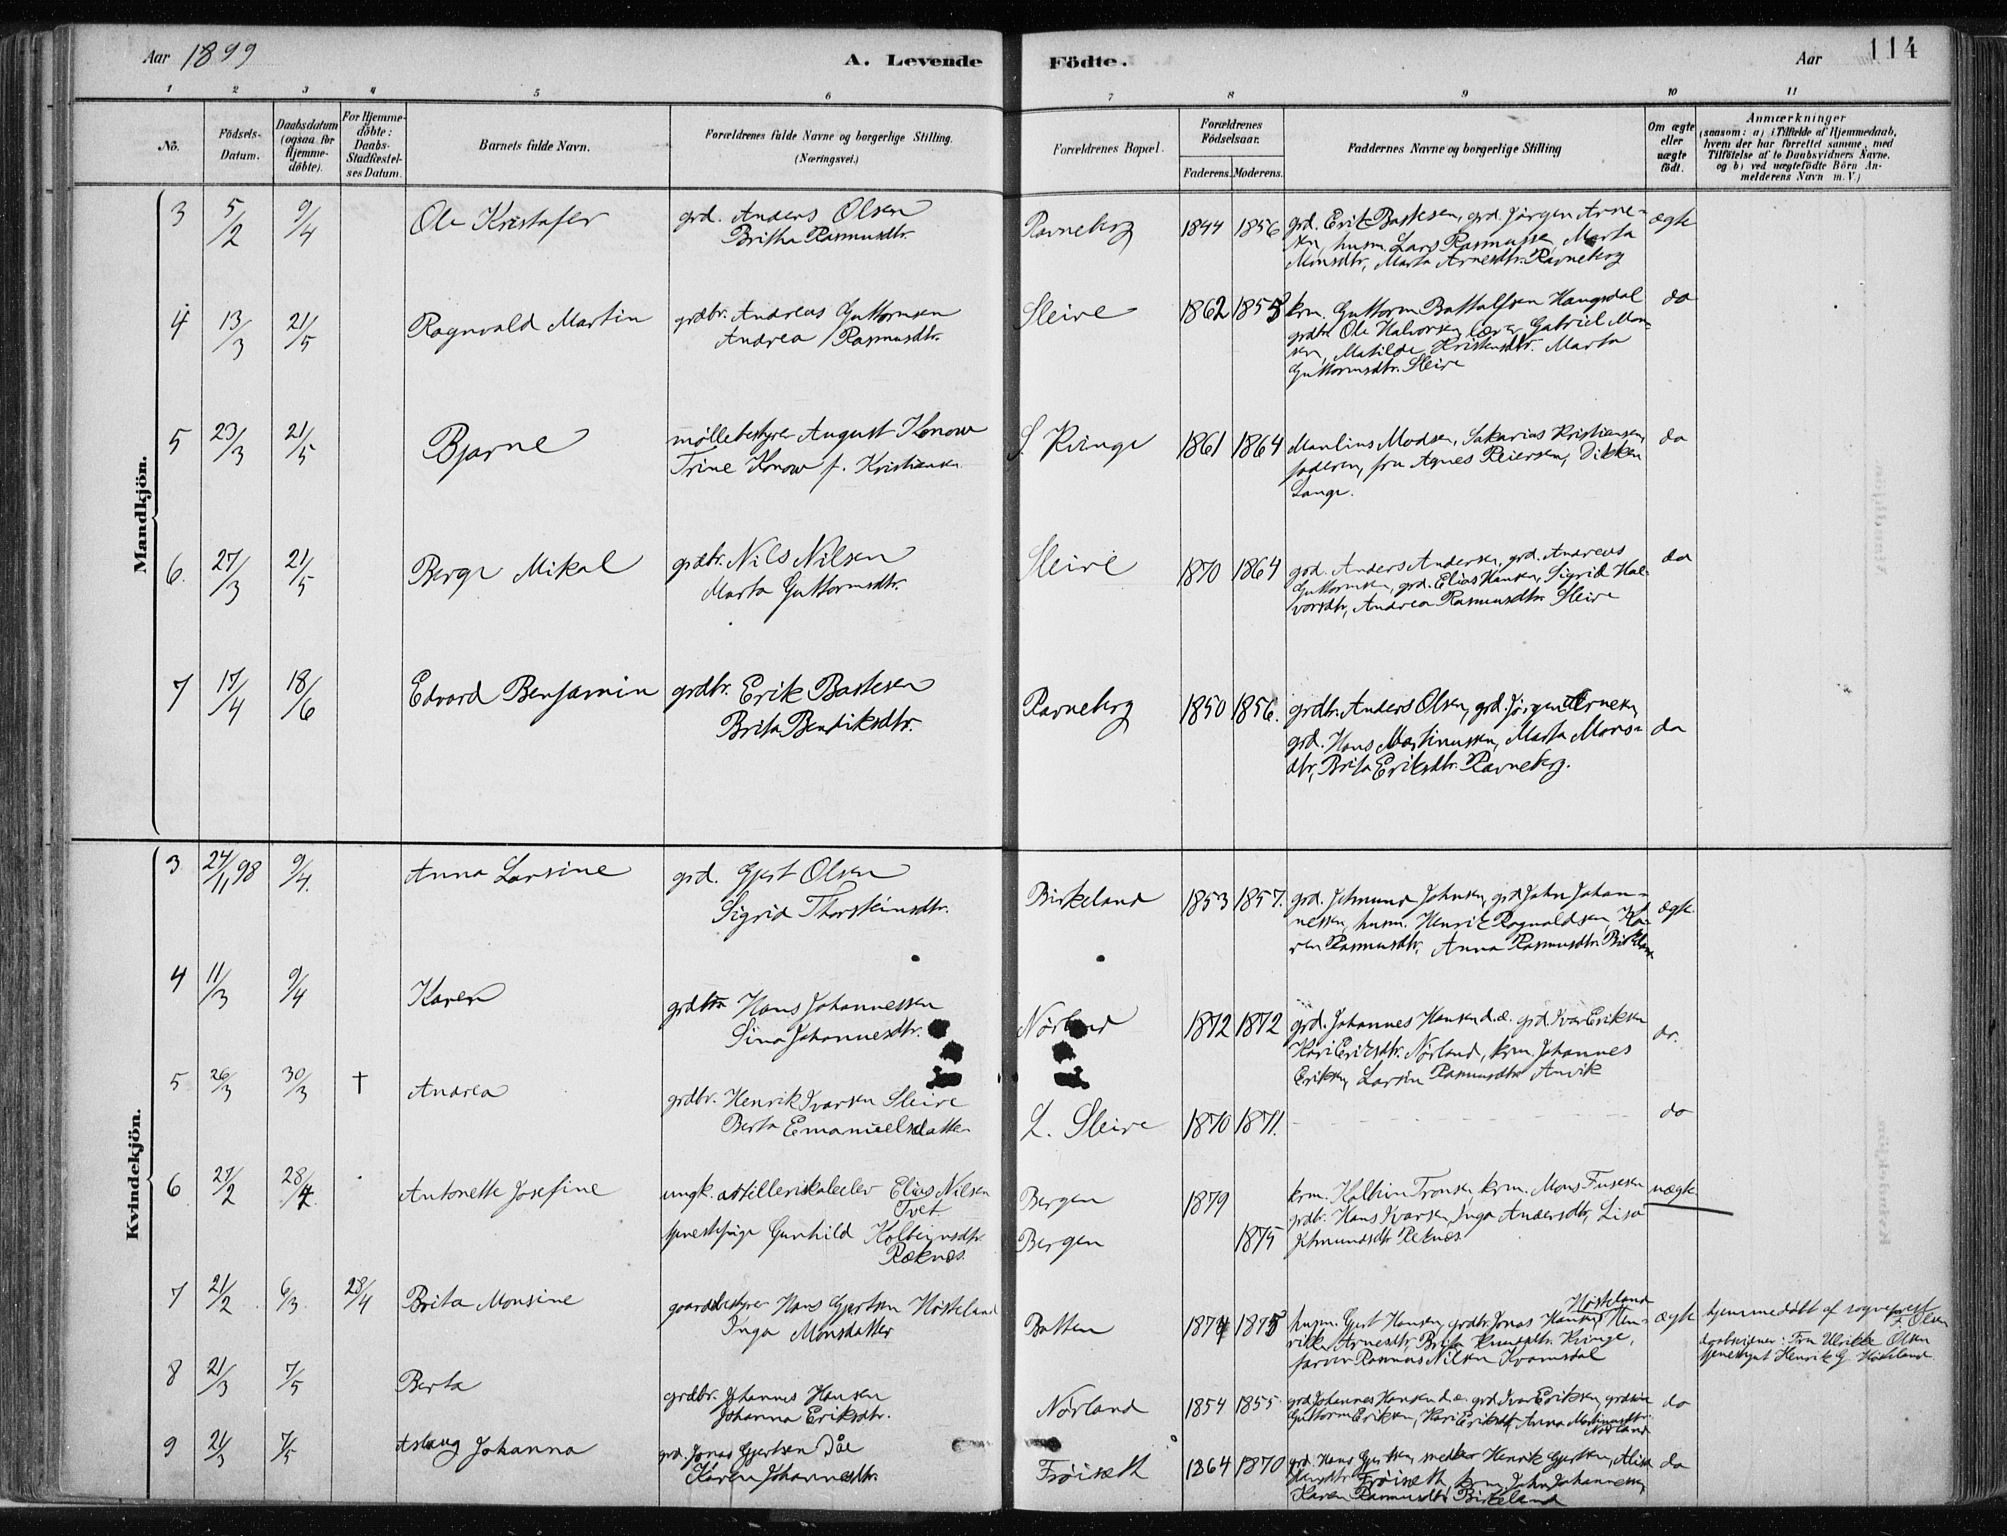 Aar 1899
A. Levende
Födte.
Aar
114
1 2 3 4 5 6 7 8 9 10 11
No.
Födsels-
Datum.
Daabsdatum
(ogsaa for
Hjemme-
döbte).
For Hjemme-
döbte:
Daabs-
Stadfæstel-
ses Datum.
Barnets fulde Navn.
Forældrenes fulde Navne og borgerlige Stilling.
(Næringsvei.)
Forældrenes Bopæl.
Forældrenes
Födselsaar.
Faderens.
Moderens.
Faddernes Navne og borgerlige Stilling
Om ægte
eller
uægte
födt.
Anmærkninger
(saasom: a) i Tilfælde af Hjemmedaab,
hvem der har forrettet samme, med
Tilföielse af to Daabsvidners Navne.
og b) ved uægtefödte Börn An-
melderens Navn m.V.)
Mandkjön.
3 5/2 9/4 Ole Kristofer
grd. Anders Olsen
Britha Rasmusdtr.
Ravneberg 1844 1856
grd. Erik Bastesen, grd. Jörgen Arne-
sen, husm. Lars Rasmussen, Marta
Monsdtr, Marta Arnesdtr. Ravneberg
ægte
4 13/3 21/5 Ragnvald Martin
grdbr. Andreas Guttormsen
Andrea Rasmusdtr.
Sleire 1862 1853
krm. Guttorm Bottolfsen Haugsdal
grdbr Ole Halvorsen, lærer Gabriel Mon-
sen, Matilde Kristensdtr. Marta
Guttormsdtr. Sleire
do
5 23/3 21/5 Bjarne
møllebestyrer August Konow
Trine Konow f. Kristiansen
S. Kvinge 1861 1864
Manlius Modsen, Sakarias Kristiansen,
faderen, fru Agnes Reiersen, Dikken
Lange.
do
6. 27/3 21/5 Berge Mikal
grdbr. Nils Nilsen
Marta Guttormsdtr.
Sleire 1870 1864
grd. Anders Andersen, grd. Andreas
Guttormsen, grd. Elias Hansen, Sigrid Hal-
vorsdtr, Andrea Rasmusdtr. Sleire
do
7 17/4 18/6 Edvard Benjamin
grdbr. Erik Bastesen
Brita Bendiksdtr.
Ravneberg 1850 1856.
grdbr. Anders Olsen, grd. Jörgen Arnesen,
grd. Hans Martinussen, Marta Mons-
dtr, Brita Eriksdtr. Ravneberg.
do
Kvindekjön.
3 24/11 98 9/4. Anna Larsine
grd. Gjert Olsen
Sigrid Thorsteinsdtr.
Birkeland 1853 1857.
grd. Johnsen, grd John Johan-
nessen, husm. Henrik Ragnvaldsen, Ka-
ren Rasmusdtr, Anna Rasmusdtr Birkeland
ægte.
4 11/3 9/4 Karen
grdbr Hans Johannessen
Sina Johannesdtr.
Nørland 1872 1872
grd. Johannes Hansen d.æ. grd Ivar Eriksen
Kari Eriksdtr. Nørland, krm. Johannes
Eriksen, Larsin Rasmusdtr Anvik
do.
5 26/3 30/3 † Andrea
grdbr. Henrik Ivarsen Sleire
Berta Emanuelsdatter
L. Sleire 1870 1871.
do
6 27/2 28/4 Antonette Josefine
ungk. artilleriskoleelev Elias Nilsen
Tvet
tjenestepige Gunhild Kolbeinsdtr
Reknes.
Bergen 1879
Bergen 1875
krm. Kolbein Tronsen, krm. Mons
grdbr. Hans Ivarsen, Inga Andersdtr, Lisa
Reknes
uægte
7 21/2 6/3. 28/4 Brita Monsine
gaardsbestyrer Hans Gjertsen Høsteland
Inga Monsdatter
Batten 1874 1875
Høsteland
husm. Gjert Hansen, grdbr. Jonas Hansen, Hen-
rikke Arnesdtr, Brita Knudsdtr. Kvinge,
farver Rasmus Nilsen Kvamsdal
ægte
hjemmedøbt af sogneprest
Olsen
daabsvidner: Fru Ulrikke Olsen
tjenestegut Henrik G. Høsteland.
8 21/3 7/5 Berta
grdbr. Johannes Hansen
Johanna Eriksdtr.
Nörland 1854 1855
grd Johannes Hansen d.æ. grd Ivar Eriksen, grdsøn
Guttorm Eriksen, Kari Eriksdtr, Anna Martinusdtr
Nørland
do
9 21/3 7/5 Aslaug Johanna
grd. Jonas Gjertsen Daae
Karen Johannesdtr.
Fröiseth 1864 1870
grd. Hans Gjertsen, snedker Henrik Gjertsen,
Fröiseth, krm. John Johannessen,
Karen Rasmusdtr Birkeland
do